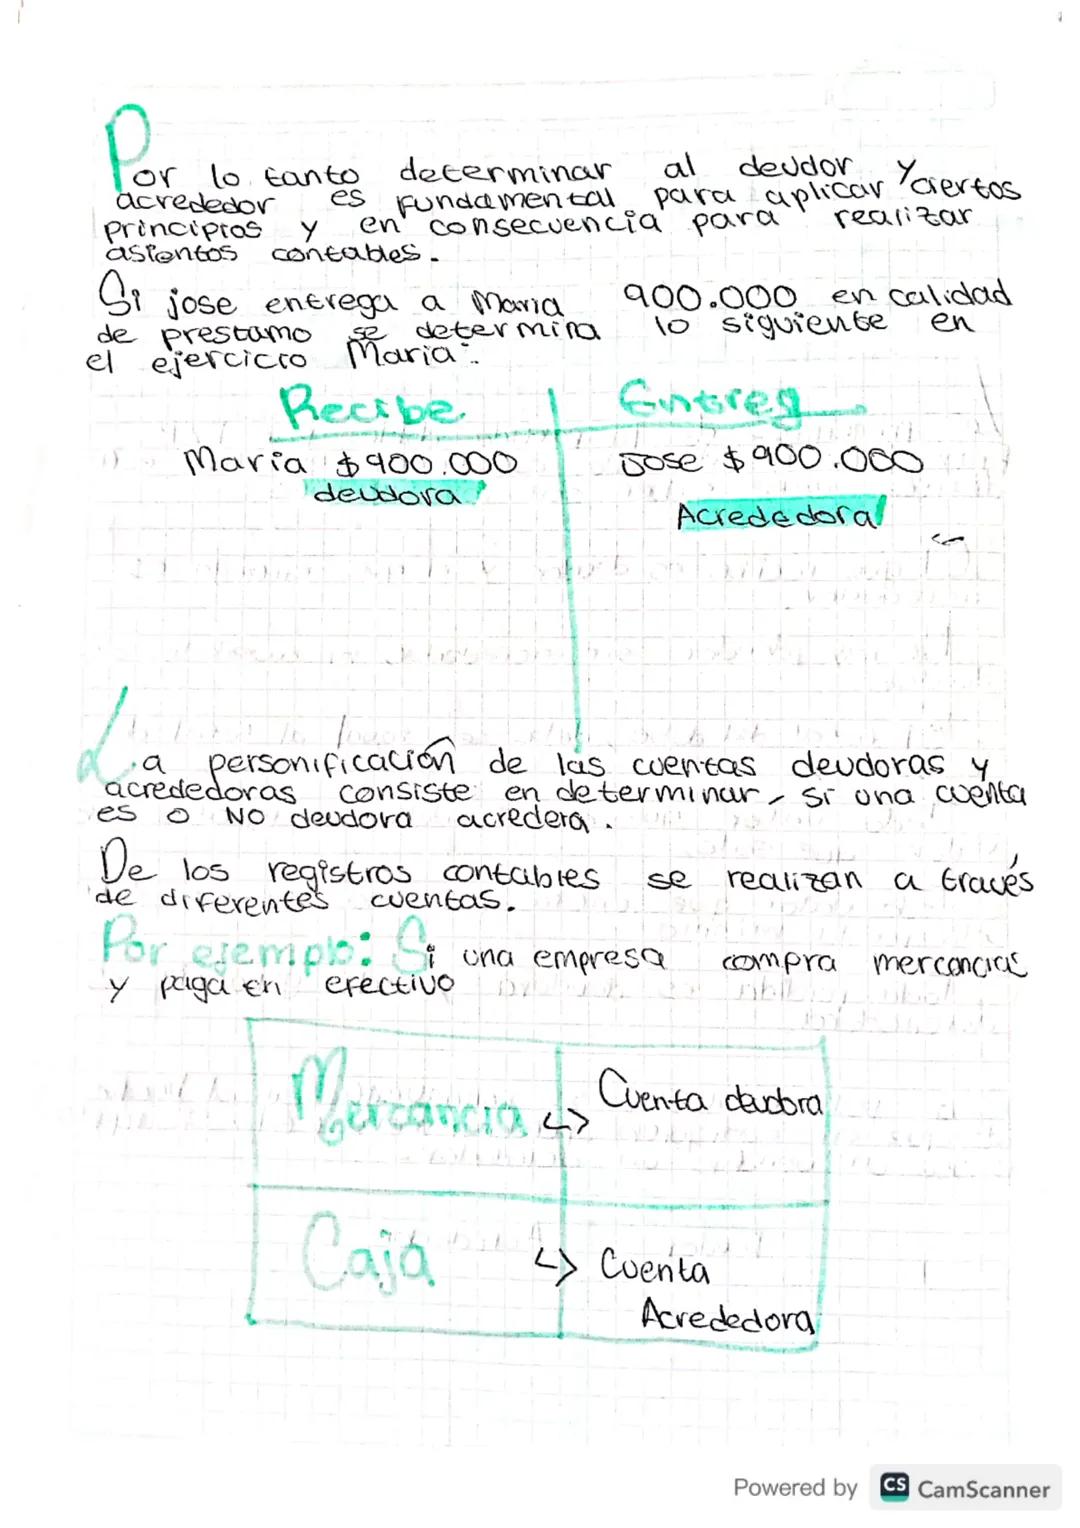 Por lo tanto determinar al deudor y
acrededor es fundamental para aplicar ciertos
principios y en consecuencia para realizar
asientos contables.
Si jose entrega a Maria 900.000 en calidad
de prestamo se determina lo siguiente en
el ejercicio Maria:
Recibe Entreg
Maria $900.000 Jose $900.000
deudora Acrededora
La personificación de las cuentas deudoras y
acrededoras consiste en determinar, si una cuenta
es o NO deudora acredera.
De los registros contables se realizan a través
de diferentes cuentas.
Por ejemplo: Si una empresa compra mercancias
y paga en efectivo
Mercancia Cuenta deudora
Caja Cuenta
Acrededora
Powered by CS CamScanner